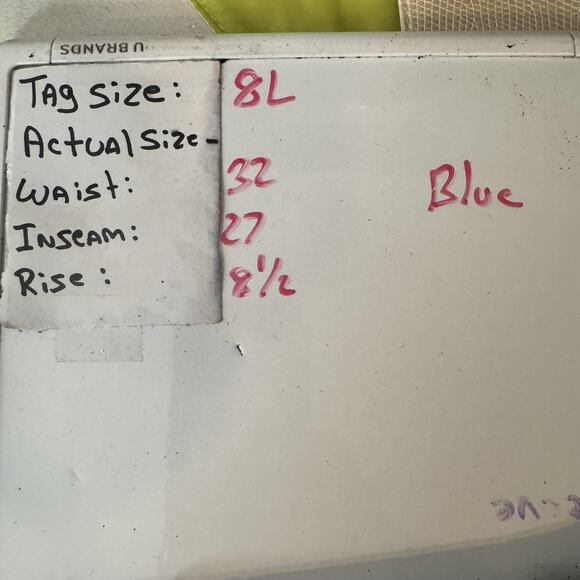 U BRANDS
Tag Size: 8L
Actual Size -
Waist: 32
Blue
Inseam: 27
Rise: 8 1/2